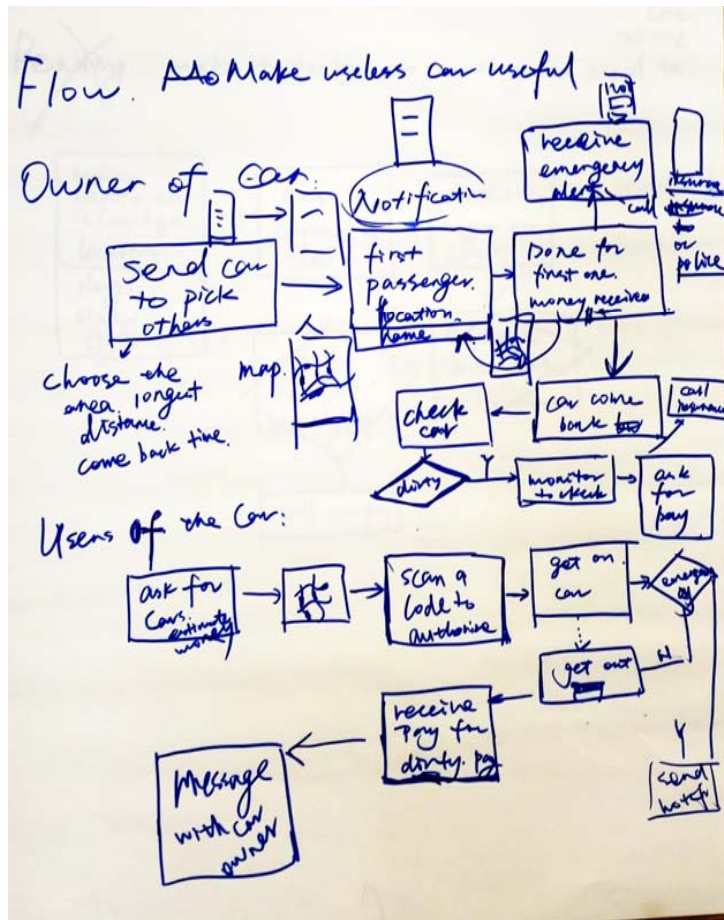 Flow. Make useless car useful
not
receive
emergency
alert
call
insurance
or
police
Owner of Car:
Notification
Send car
to pick
others
first
passenger.
location
name
Done for
first one.
money received
choose the
area. longest
distance.
come back time.
map.
check
car
car come
back
call
insurance
dirty
Y
monitor
to check
ask
for
pay
Users of the Car:
ask for
cars.
estimate
money
scan a
code to
authorize
get on
car
emergency
get out
N
receive
pay for
dirty. pay
Y
send
notif
Message
with car
owner